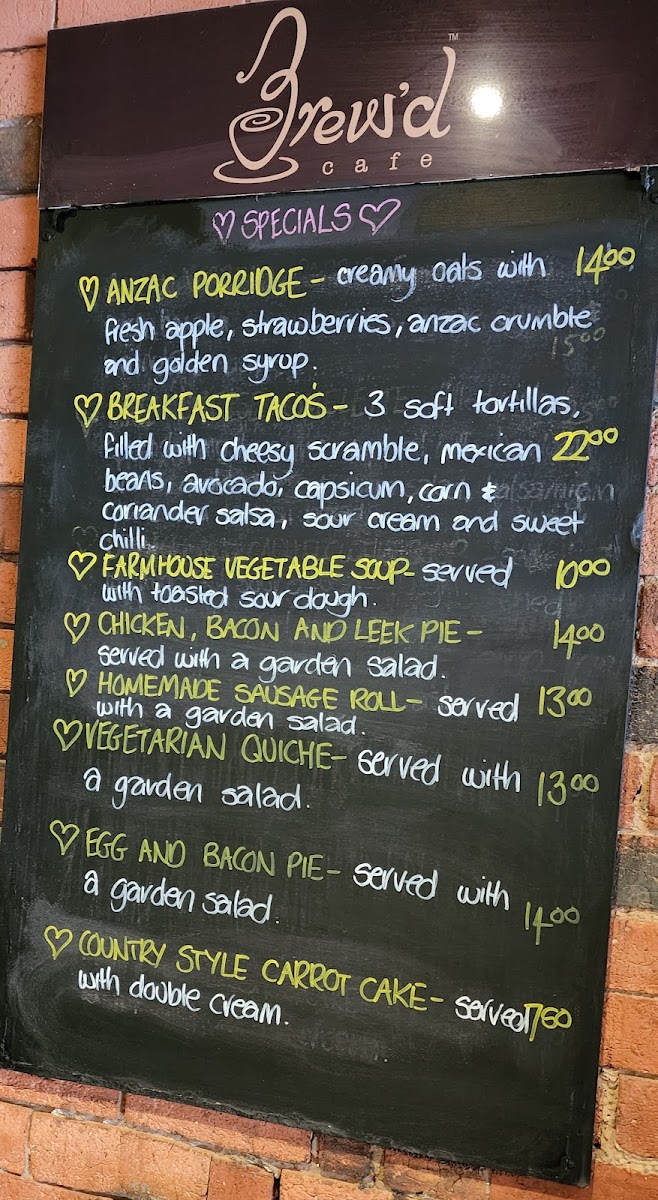 Brew'd™
cafe
♡ SPECIALS ♡
♡ ANZAC PORRIDGE - creamy oats with 14.00
fresh apple, strawberries, anzac crumble
15.00
and golden syrup.
♡ BREAKFAST TACO'S - 3 soft tortillas,
filled with cheesy scramble, mexican 22.00
beans, avocado, capsicum, corn &
coriander salsa, sour cream and sweet
chilli
♡ FARMHOUSE VEGETABLE SOUP - served 10.00
with toasted sour dough.
♡ CHICKEN, BACON AND LEEK PIE - 14.00
served with a garden salad.
♡ HOMEMADE SAUSAGE ROLL - served 13.00
with a garden salad.
♡ VEGETARIAN QUICHE - served with 13.00
a garden salad.
♡ EGG AND BACON PIE - served with 14.00
a garden salad.
♡ COUNTRY STYLE CARROT CAKE - served 7.50
with double cream.